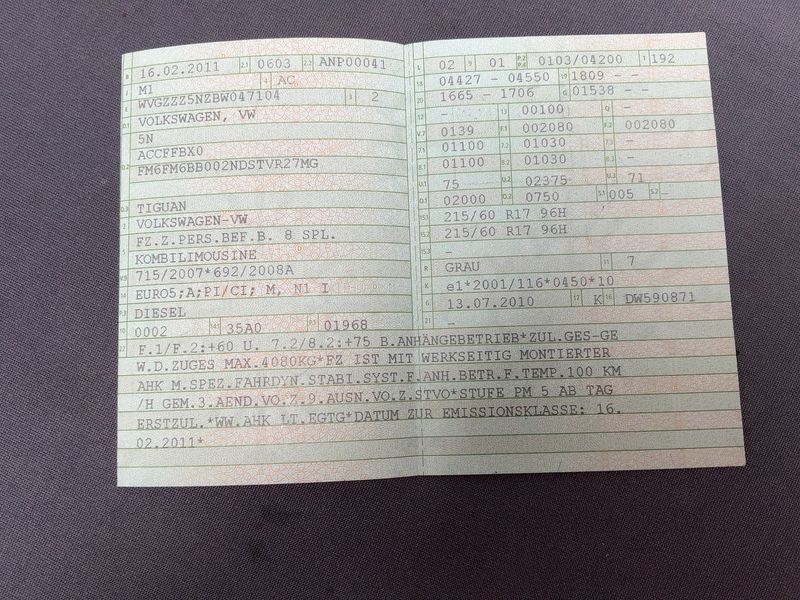 B 16.02.2011 2.1 0603 2.2 ANP00041
J M1 4 AC
E WVGZZZ5NZBW047104 3 2
D.1 VOLKSWAGEN, VW
5N
D.2 ACCFFBX0
FM6FM6BB002NDSTVR27MG
D.3 TIGUAN
2 VOLKSWAGEN-VW
5 FZ.Z.PERS.BEF.B. 8 SPL.
KOMBILIMOUSINE
V.9 715/2007*692/2008A
14 EURO5;A;PI/CI; M, N1 I
P.3 DIESEL
10 0002 14.1 35A0 P.1 01968
L 02 9 01 P.2 P.4 0103/04200 T 192
18 04427 - 04550 19 1809 - -
20 1665 - 1706 G 01538 - -
12 - 13 00100 Q -
V.7 0139 F.1 002080 F.2 002080
7.1 01100 7.2 01030 7.3 -
8.1 01100 8.2 01030 8.3 -
U.1 75 U.2 02375 U.3 71
O.1 02000 O.2 0750 S.1 005 S.2 -
15.1 215/60 R17 96H
15.2 215/60 R17 96H
15.3 -
R GRAU 11 7
K e1*2001/116*0450*10
6 13.07.2010 17 K 16 DW590871
21 -
22 F.1/F.2:+60 U. 7.2/8.2:+75 B.ANHÄNGEBETRIEB*ZUL.GES-GE
W.D.ZUGES MAX.4080KG*FZ IST MIT WERKSEITIG MONTIERTER
AHK M.SPEZ.FAHRDYN.STABI.SYST.F.ANH.BETR.F.TEMP.100 KM
/H GEM.3.AEND.VO.Z.9.AUSN.VO.Z.STVO*STUFE PM 5 AB TAG
ERSTZUL.*WW.AHK LT.EGTG*DATUM ZUR EMISSIONSKLASSE: 16.
02.2011*